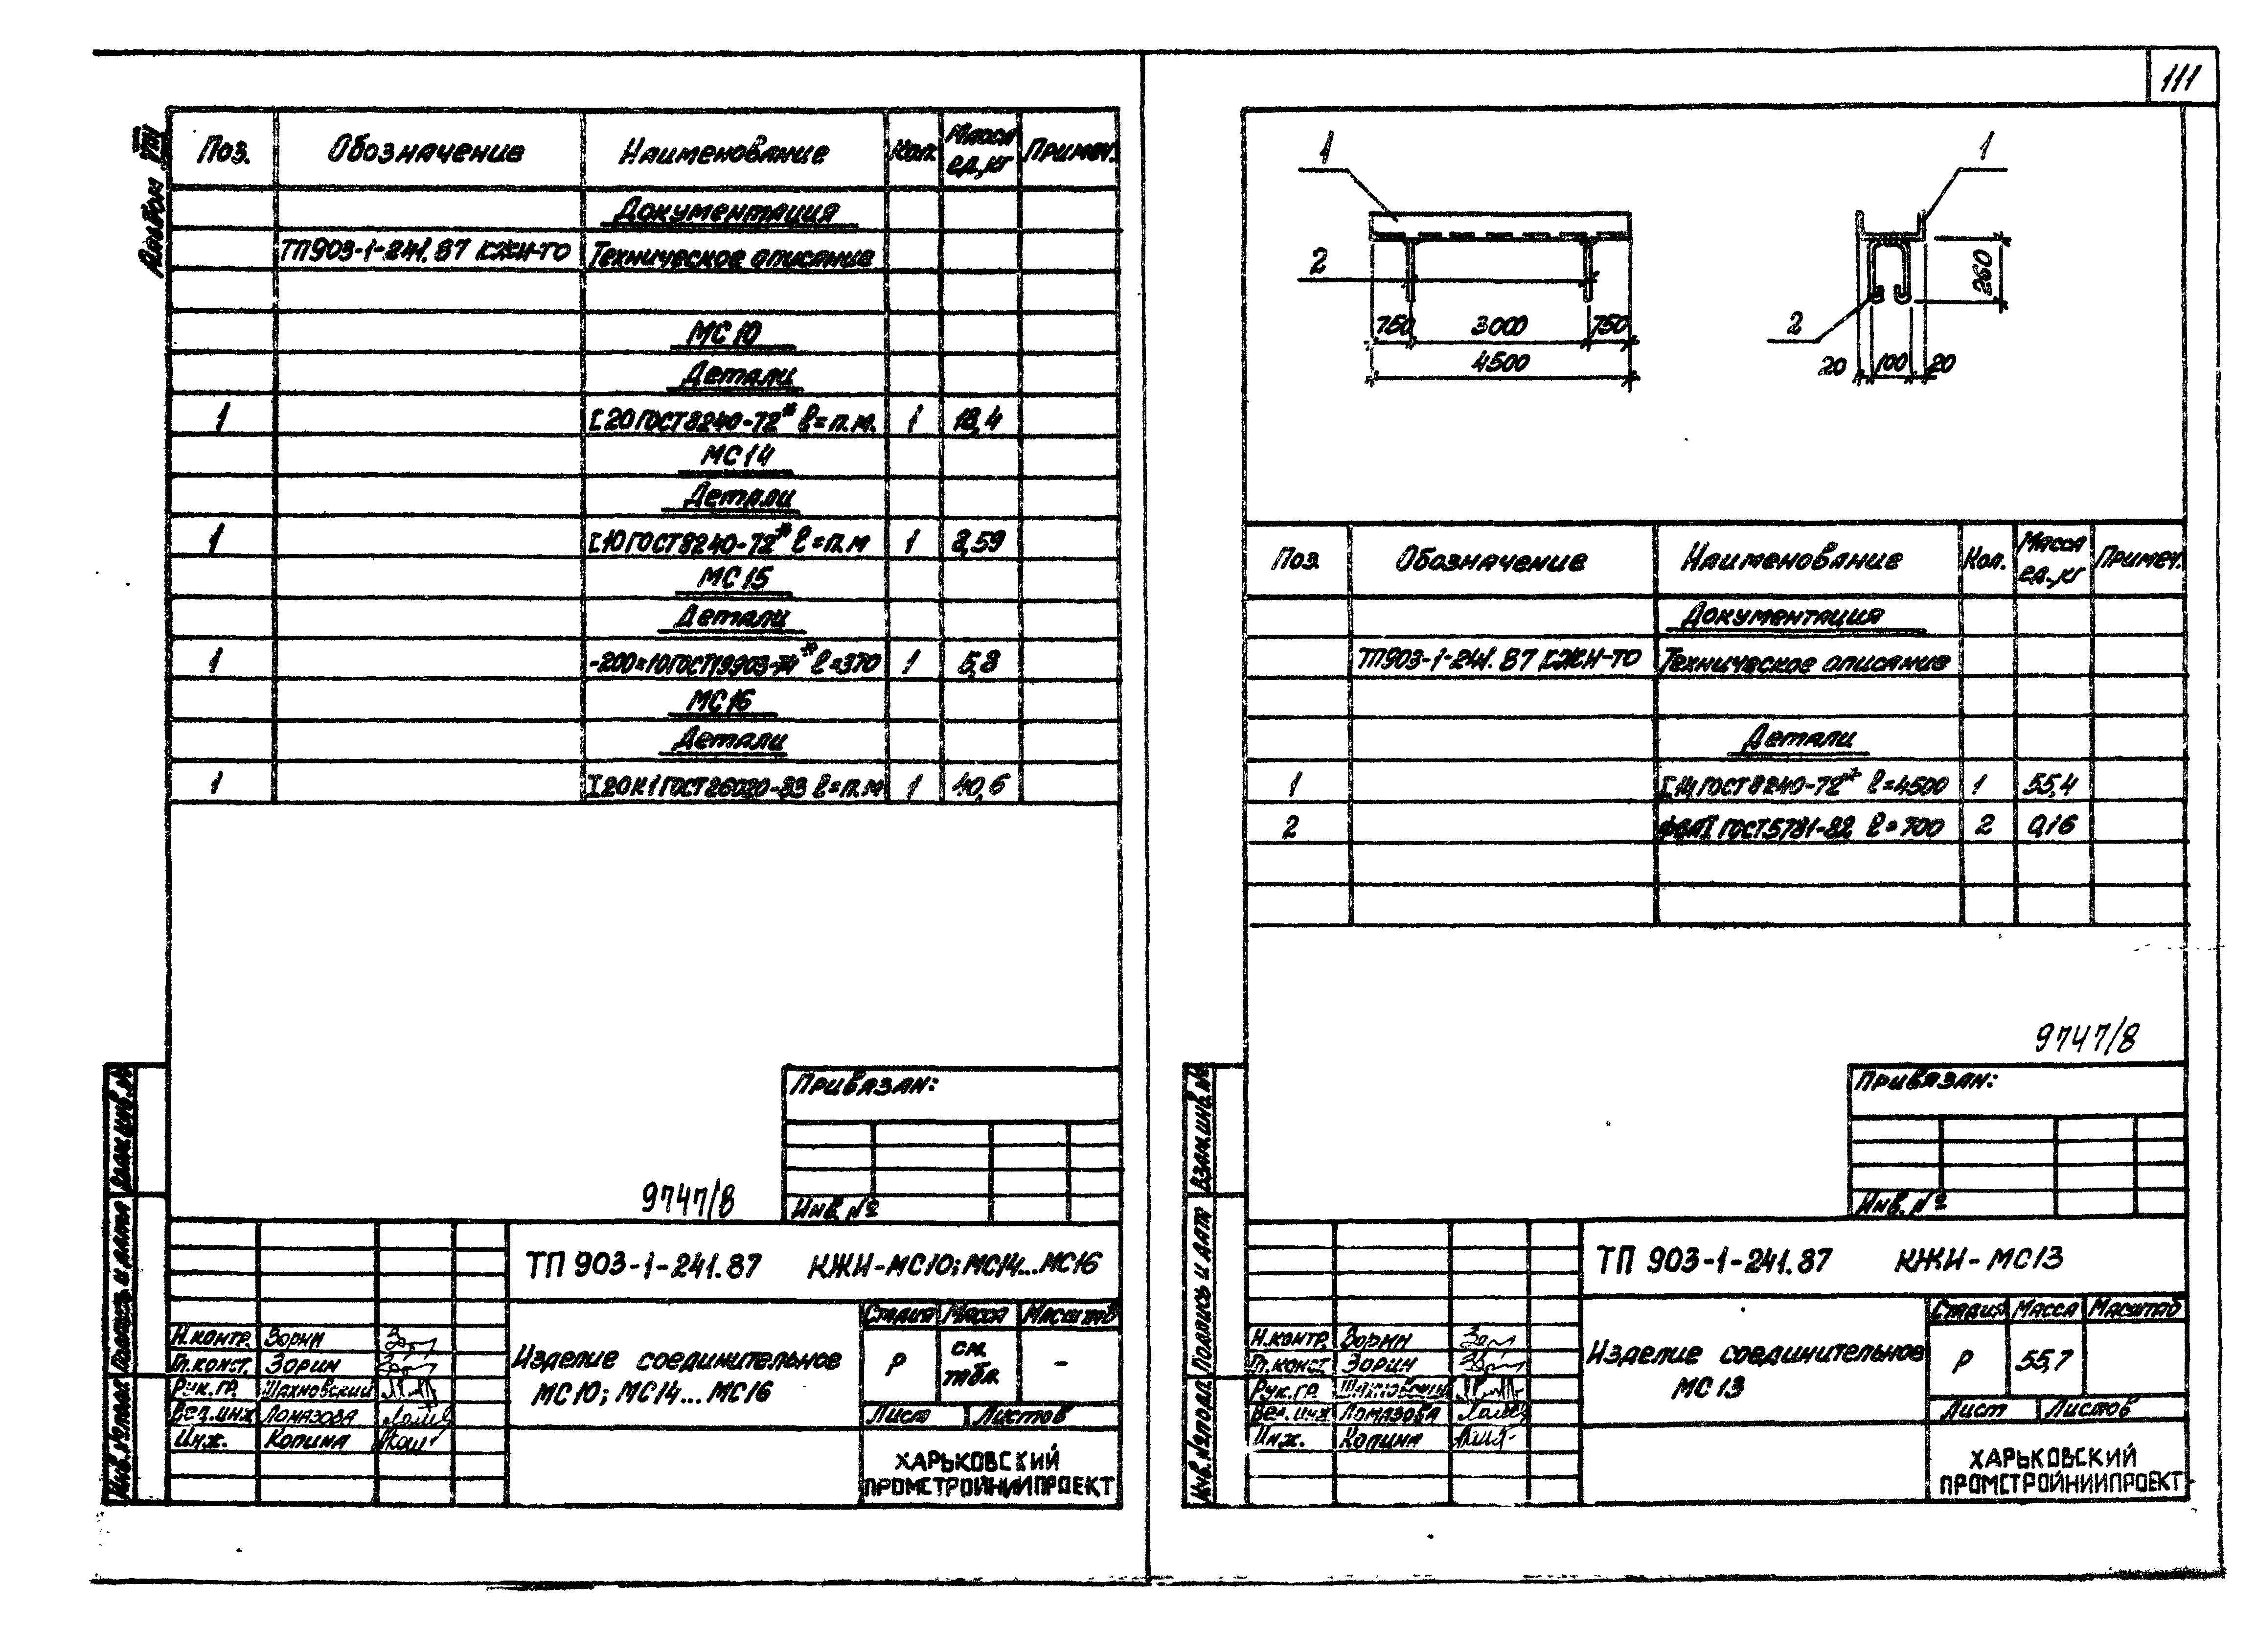 111
Альбом VIII
Поз. Обозначение Наименование Кол. Масса ед., кг Примеч.
Документация
ТП903-1-241.87 КЖИ-ТО Техническое описание
МС10
Детали
1 [20 ГОСТ 8240-72* ℓ=п.м. 1 18,4
МС14
Детали
1 [10 ГОСТ 8240-72* ℓ=п.м 1 8,59
МС15
Детали
1 -200×10 ГОСТ 19903-74* ℓ=370 1 5,8
МС16
Детали
1 I20К1 ГОСТ 26020-83 ℓ=п.м 1 40,6
Привязан:
Инв. №
9747/8
ТП 903-1-241.87 КЖИ-МС10; МС14...МС16
Стадия Масса Масштаб
Н.контр. Зорин
Гл.конст. Зорин
Рук.гр. Шахновский
Вед.инж Ломазова
Инж. Копина
Изделие соединительное
МС10; МС14...МС16
Р см. табл. -
Лист Листов
ХАРЬКОВСКИЙ
ПРОМСТРОЙНИИПРОЕКТ
Взам.инв.№
Подпись и дата
Инв.№подл.
1
2
750 3000 750
4500
1
2
260
20 100 20
Поз. Обозначение Наименование Кол. Масса ед., кг Примеч.
Документация
ТП903-1-241.87 КЖИ-ТО Техническое описание
Детали
1 [14 ГОСТ 8240-72* ℓ=4500 1 55,4
2 ф6АI ГОСТ 5781-82 ℓ=700 2 0,16
9747/8
Привязан:
Инв. №
ТП 903-1-241.87 КЖИ-МС13
Стадия Масса Масштаб
Н.контр. Зорин
Гл.конст Зорин
Рук.гр. Шахновский
Вед.инж Ломазова
Инж. Копина
Изделие соединительное
МС13
Р 55,7
Лист Листов
ХАРЬКОВСКИЙ
ПРОМСТРОЙНИИПРОЕКТ
Взам.инв.№
Подпись и дата
Инв.№подл.